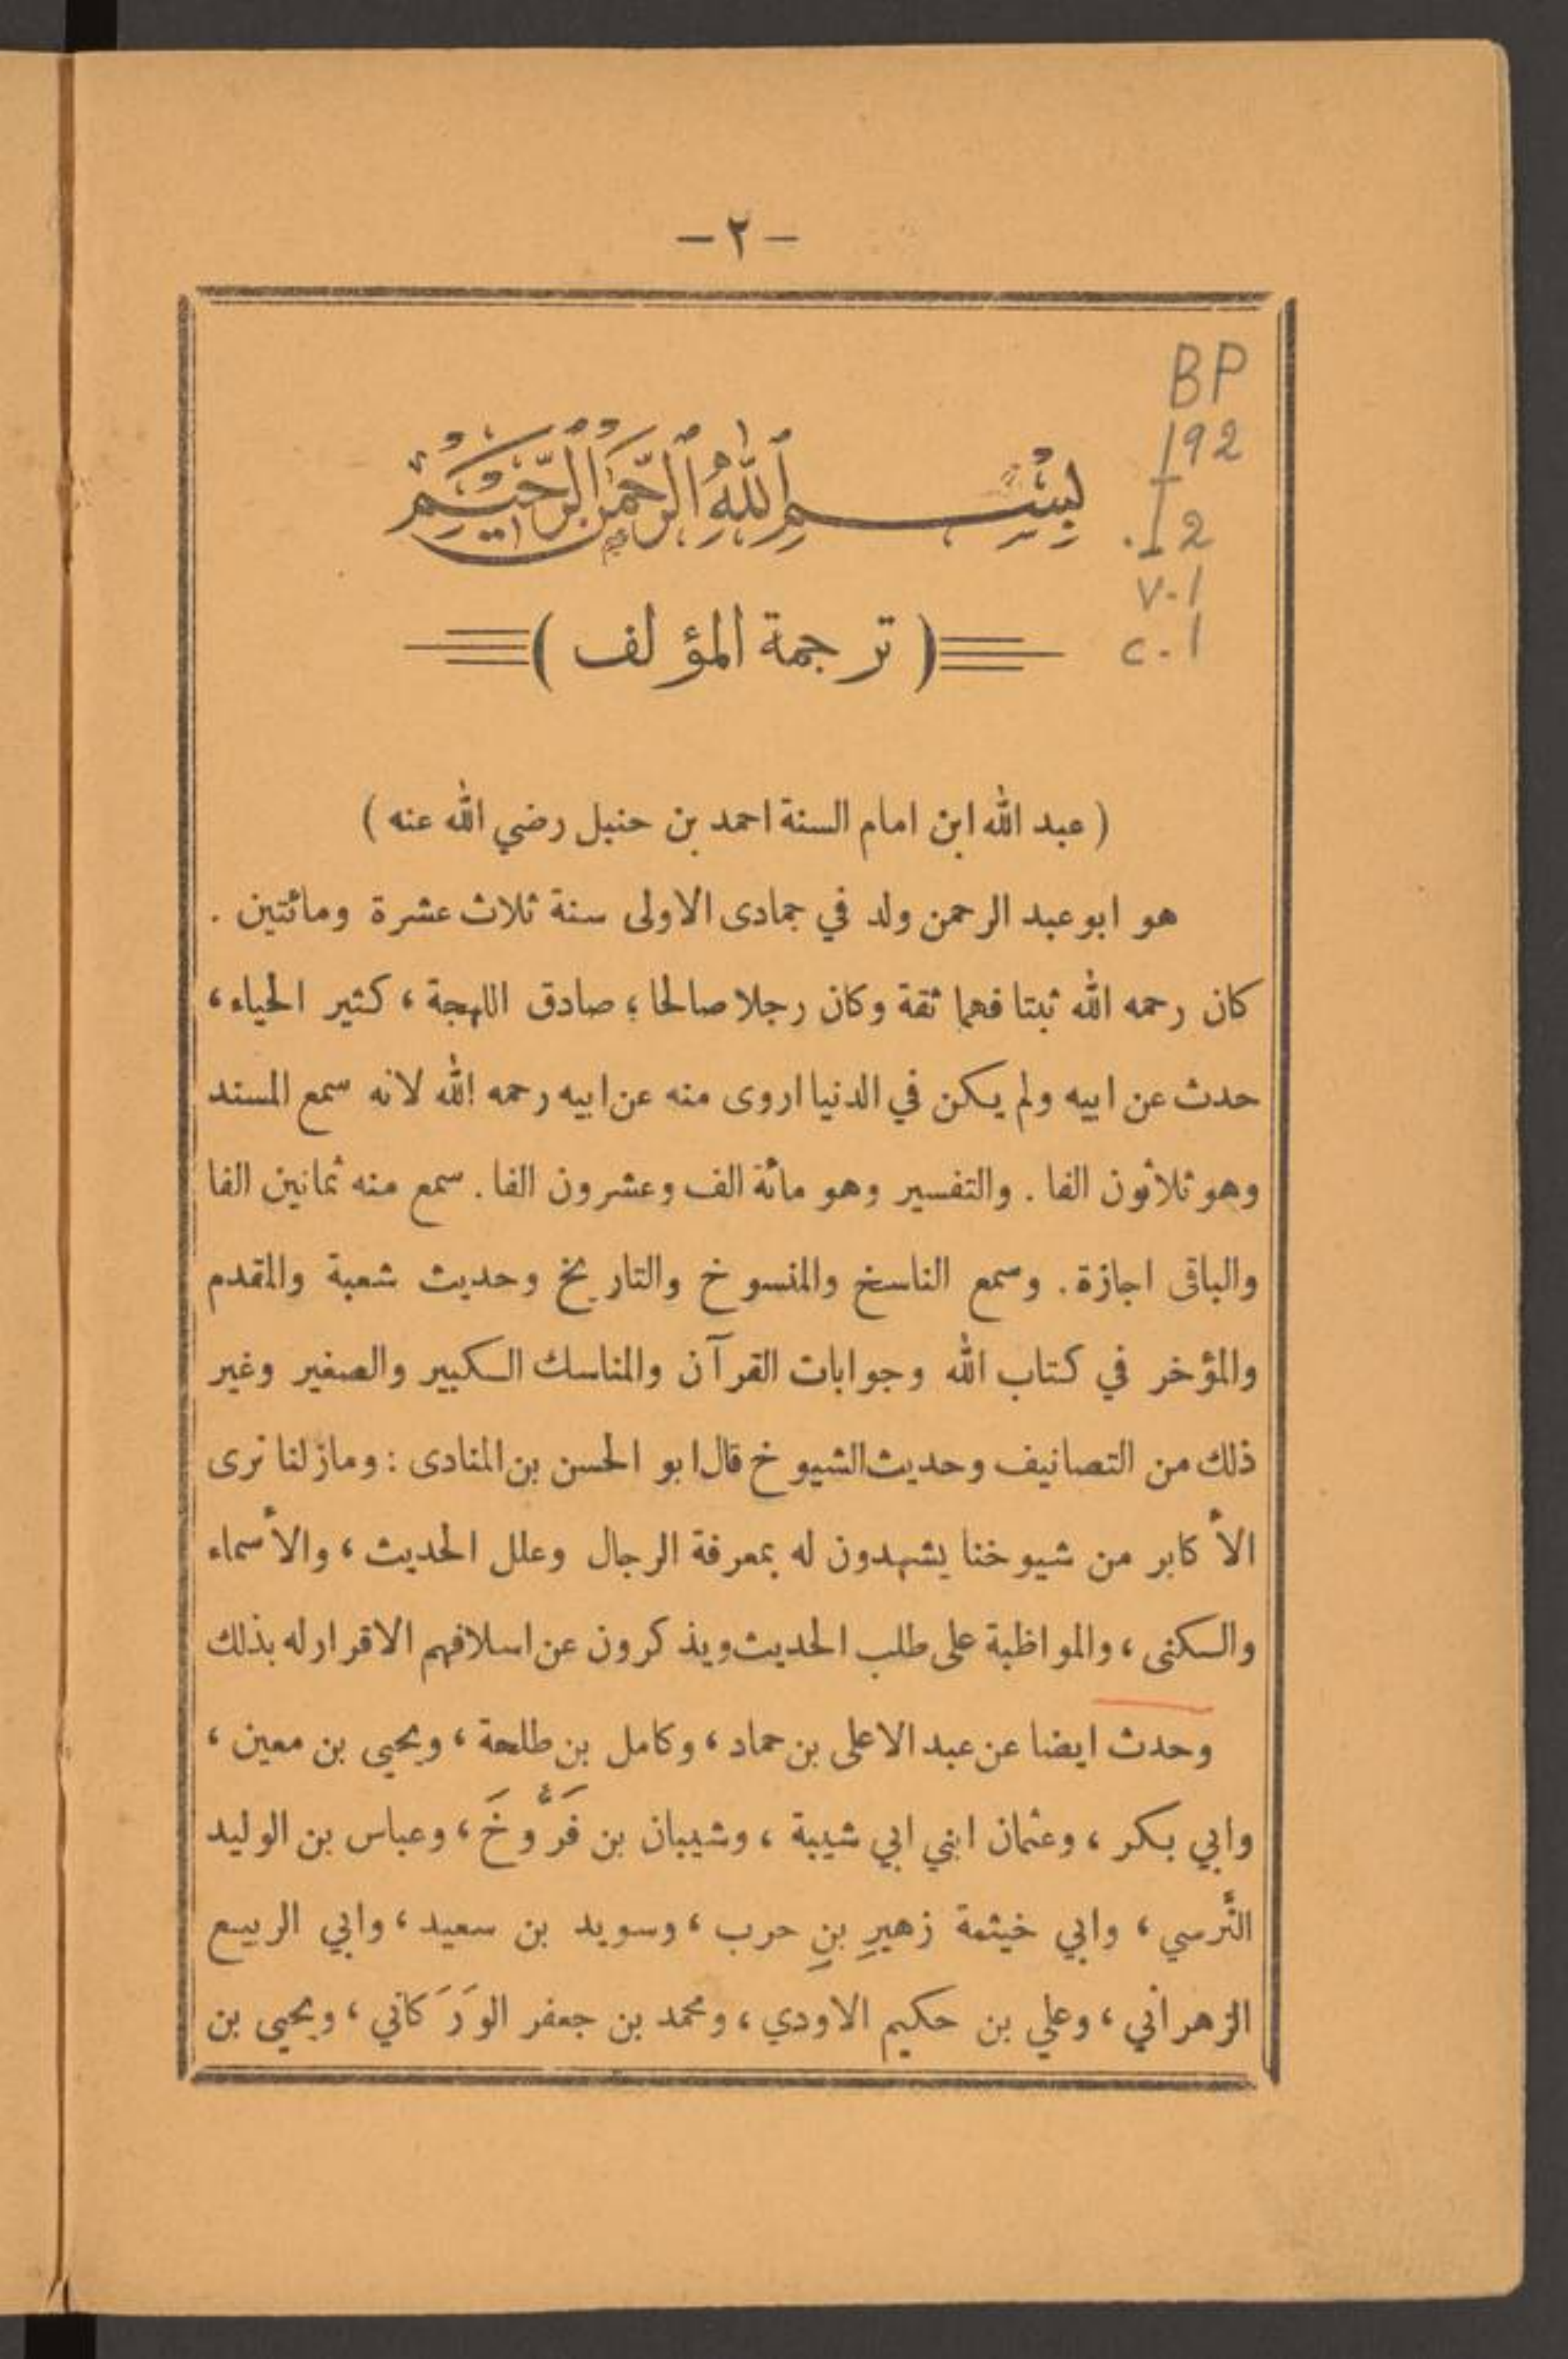 — ٢ —
BP
192
.I2
v.1
c.1
بسم الله الرحمن الرحيم
( ترجمة المؤلف )
( عبد الله ابن امام السنة احمد بن حنبل رضي الله عنه )
هو ابو عبد الرحمن ولد في جمادى الاولى سنة ثلاث عشرة ومائتين .
كان رحمه الله ثبتا فهما ثقة وكان رجلا صالحا ؛ صادق اللهجة ، كثير الحياء ،
حدث عن ابيه ولم يكن في الدنيا اروى منه عن ابيه رحمه الله لانه سمع المسند
وهو ثلاثون الفا . والتفسير وهو مائة الف وعشرون الفا . سمع منه ثمانين الفا
والباقى اجازة . وسمع الناسخ والمنسوخ والتاريخ وحديث شعبة والمقدم
والمؤخر في كتاب الله وجوابات القرآن والمناسك الكبير والصغير وغير
ذلك من التصانيف وحديث الشيوخ قال ابو الحسن بن المنادى : ومازلنا نرى
الأكابر من شيوخنا يشهدون له بمعرفة الرجال وعلل الحديث ، والأسماء
والكنى ، والمواظبة على طلب الحديث ويذكرون عن اسلافهم الاقرار له بذلك
وحدث ايضا عن عبد الاعلى بن حماد ، وكامل بن طلحة ، ويحيى بن معين ،
وابي بكر ، وعثمان ابني ابي شيبة ، وشيبان بن فَرُّوخَ ، وعباس بن الوليد
النَّرسي ، وابي خيثمة زهيرِ بنِ حرب ، وسويد بن سعيد ، وابي الربيع
الزهراني ، وعلي بن حكيم الاودي ، ومحمد بن جعفر الوَرَكاني ، ويحيى بن